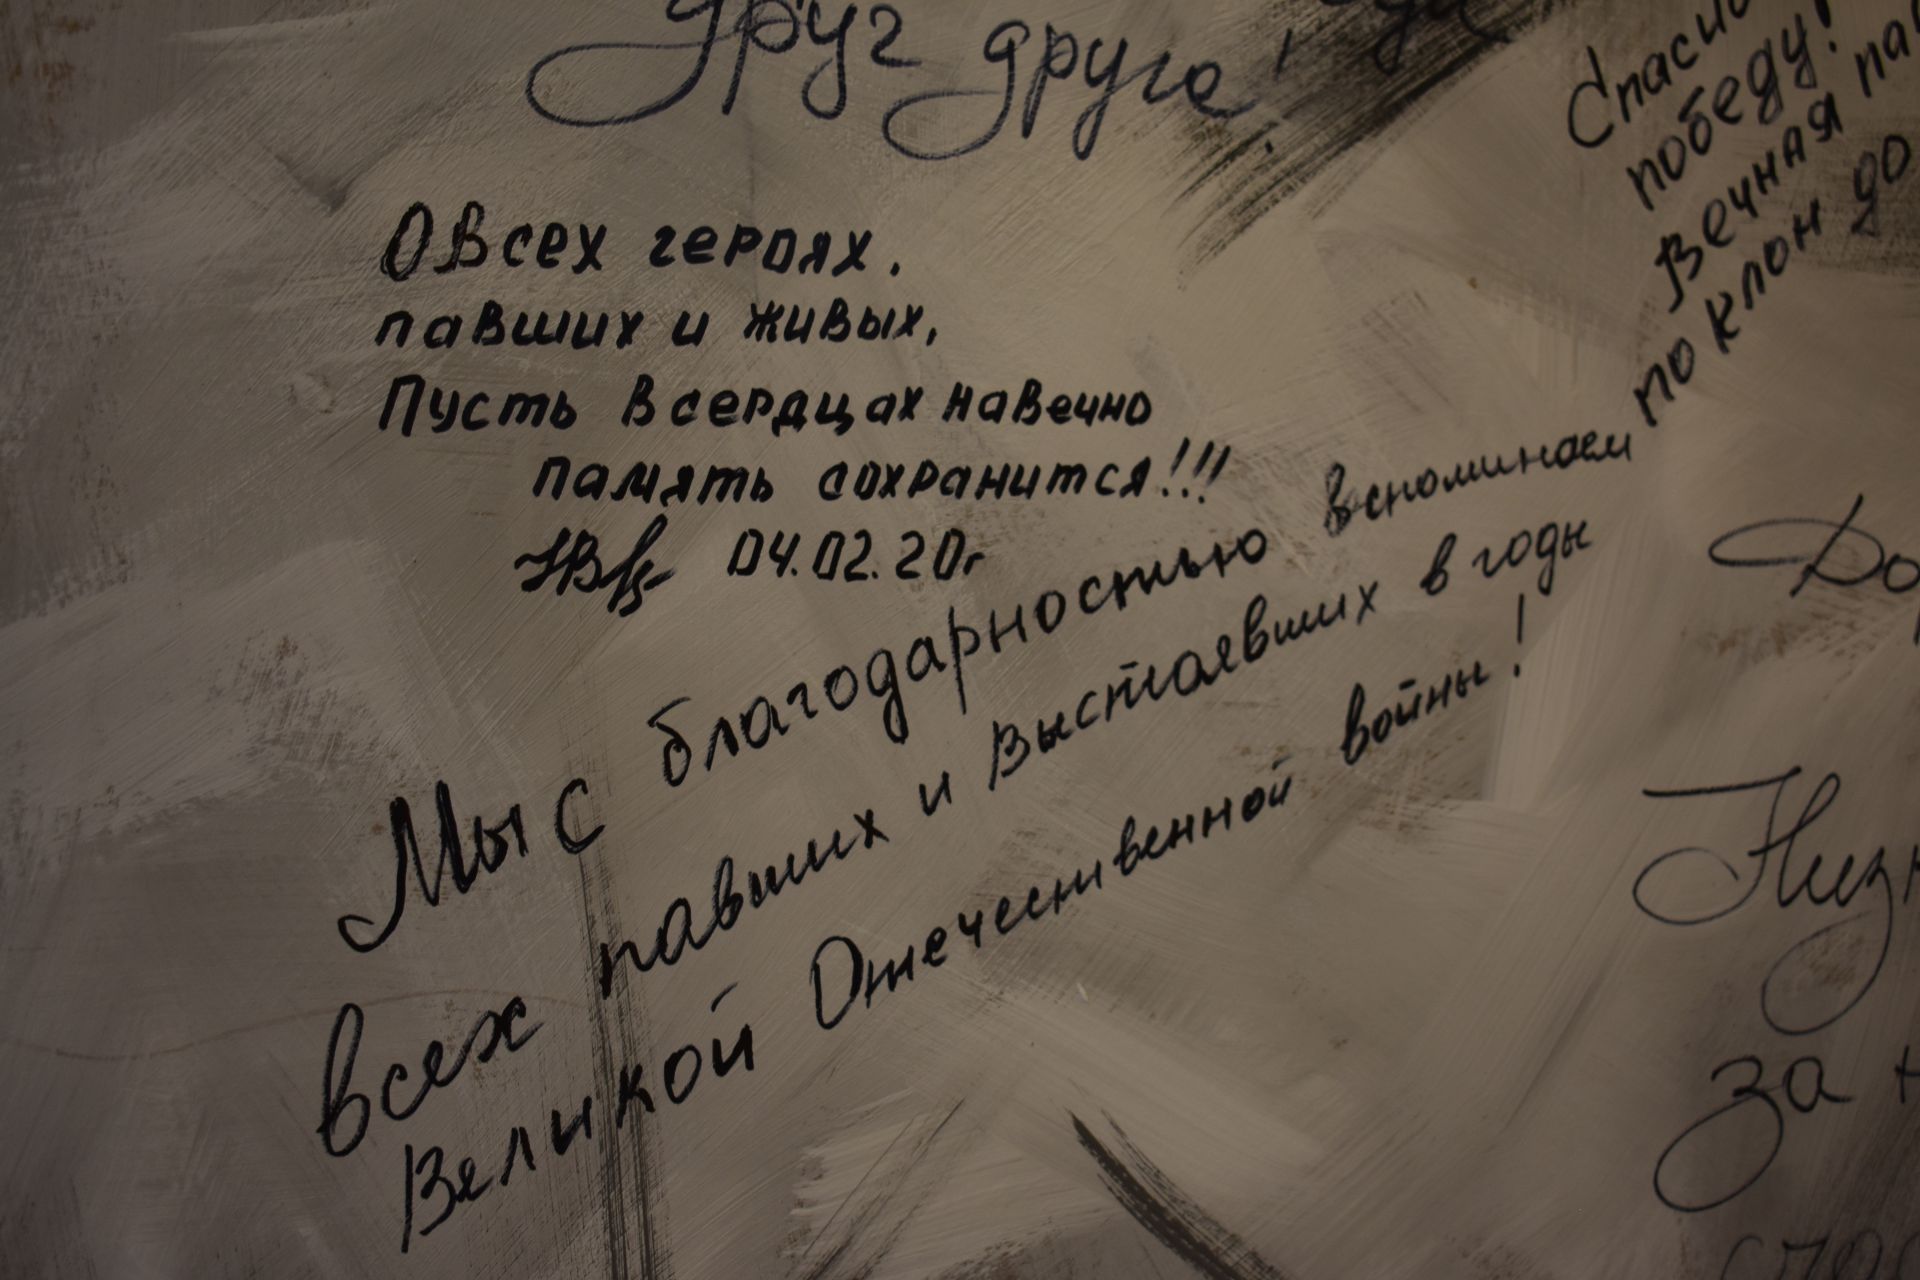 друг друга!
О всех героях.
павших и живых,
Пусть в сердцах навечно
память сохранится!!!
04.02.20г
Мы с благодарностью вспоминаем
всех павших и выстоявших в годы
Великой Отечественной войны!
победу!
Вечная
поклон до
за